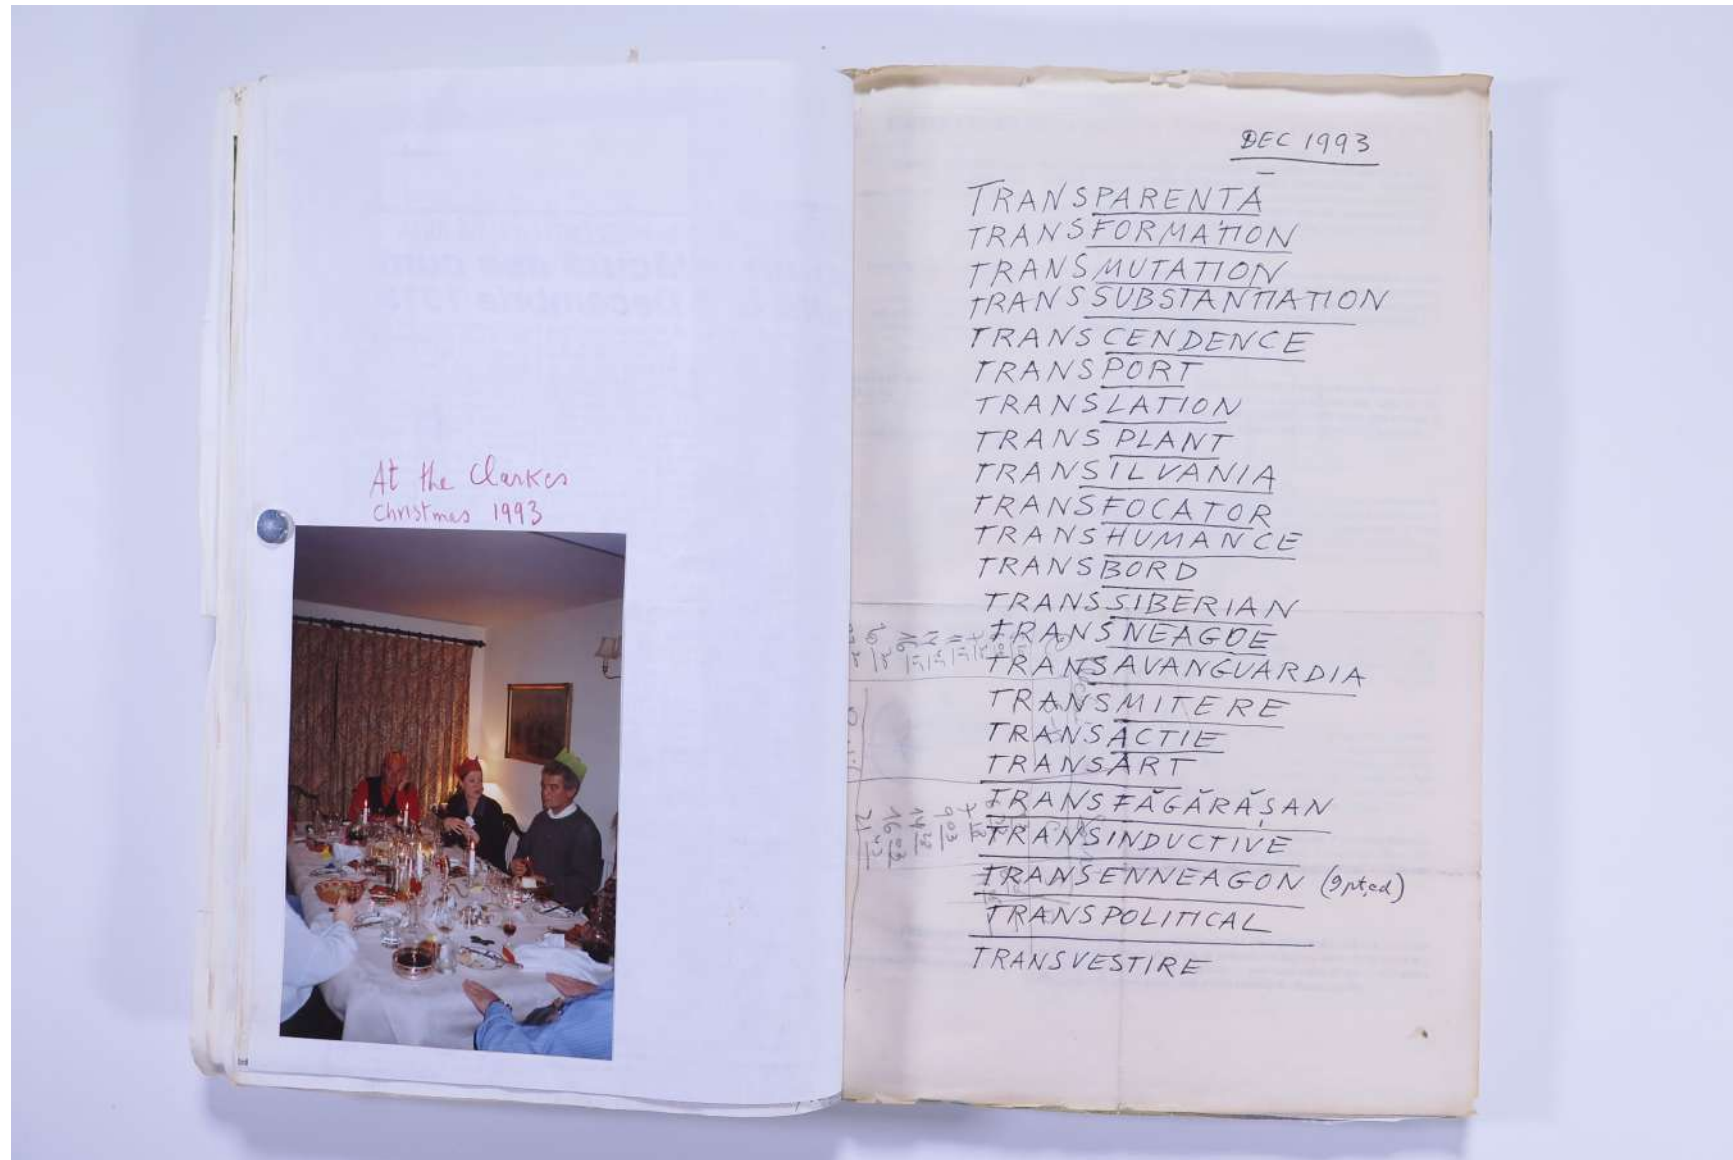 At the Clarkes
Christmas 1993
DEC 1993
TRANSPARENTĂ
TRANSFORMATION
TRANSMUTATION
TRANSSUBSTANTIATION
TRANSCENDENCE
TRANSPORT
TRANSLATION
TRANSPLANT
TRANSILVANIA
TRANSFOCATOR
TRANSHUMANCE
TRANSBORD
TRANSSIBERIAN
TRANSNEAGOE
TRANSAVANGUARDIA
TRANSMITERE
TRANSACTIE
TRANSART
TRANSFĂGĂRĂȘAN
TRANSINDUCTIVE
TRANSENNEAGON
TRANSPOLITICAL
TRANSVESTIRE